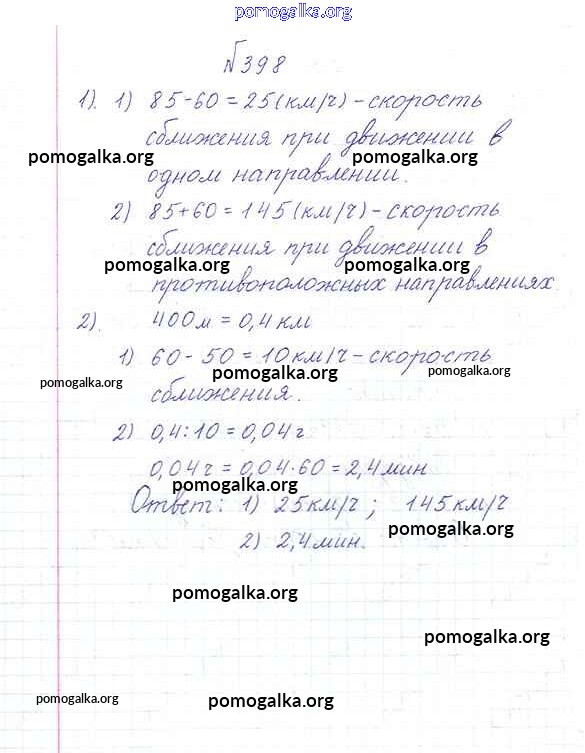 pomogalka.org
№398
1). 1) 85-60=25(км/ч)-скорость
сближения при движении в
pomogalka.org pomogalka.org
одном направлении.
2) 85+60=145(км/ч)-скорость
сближения при движении в
pomogalka.org pomogalka.org
противоположных направлениях
2). 400м=0,4км
1) 60-50=10км/ч-скорость
pomogalka.org pomogalka.org pomogalka.org
сближения.
2) 0,4:10=0,04ч
0,04ч=0,04·60=2,4мин
pomogalka.org
Ответ: 1) 25км/ч; 145км/ч
pomogalka.org
2) 2,4мин.
pomogalka.org
pomogalka.org
pomogalka.org pomogalka.org